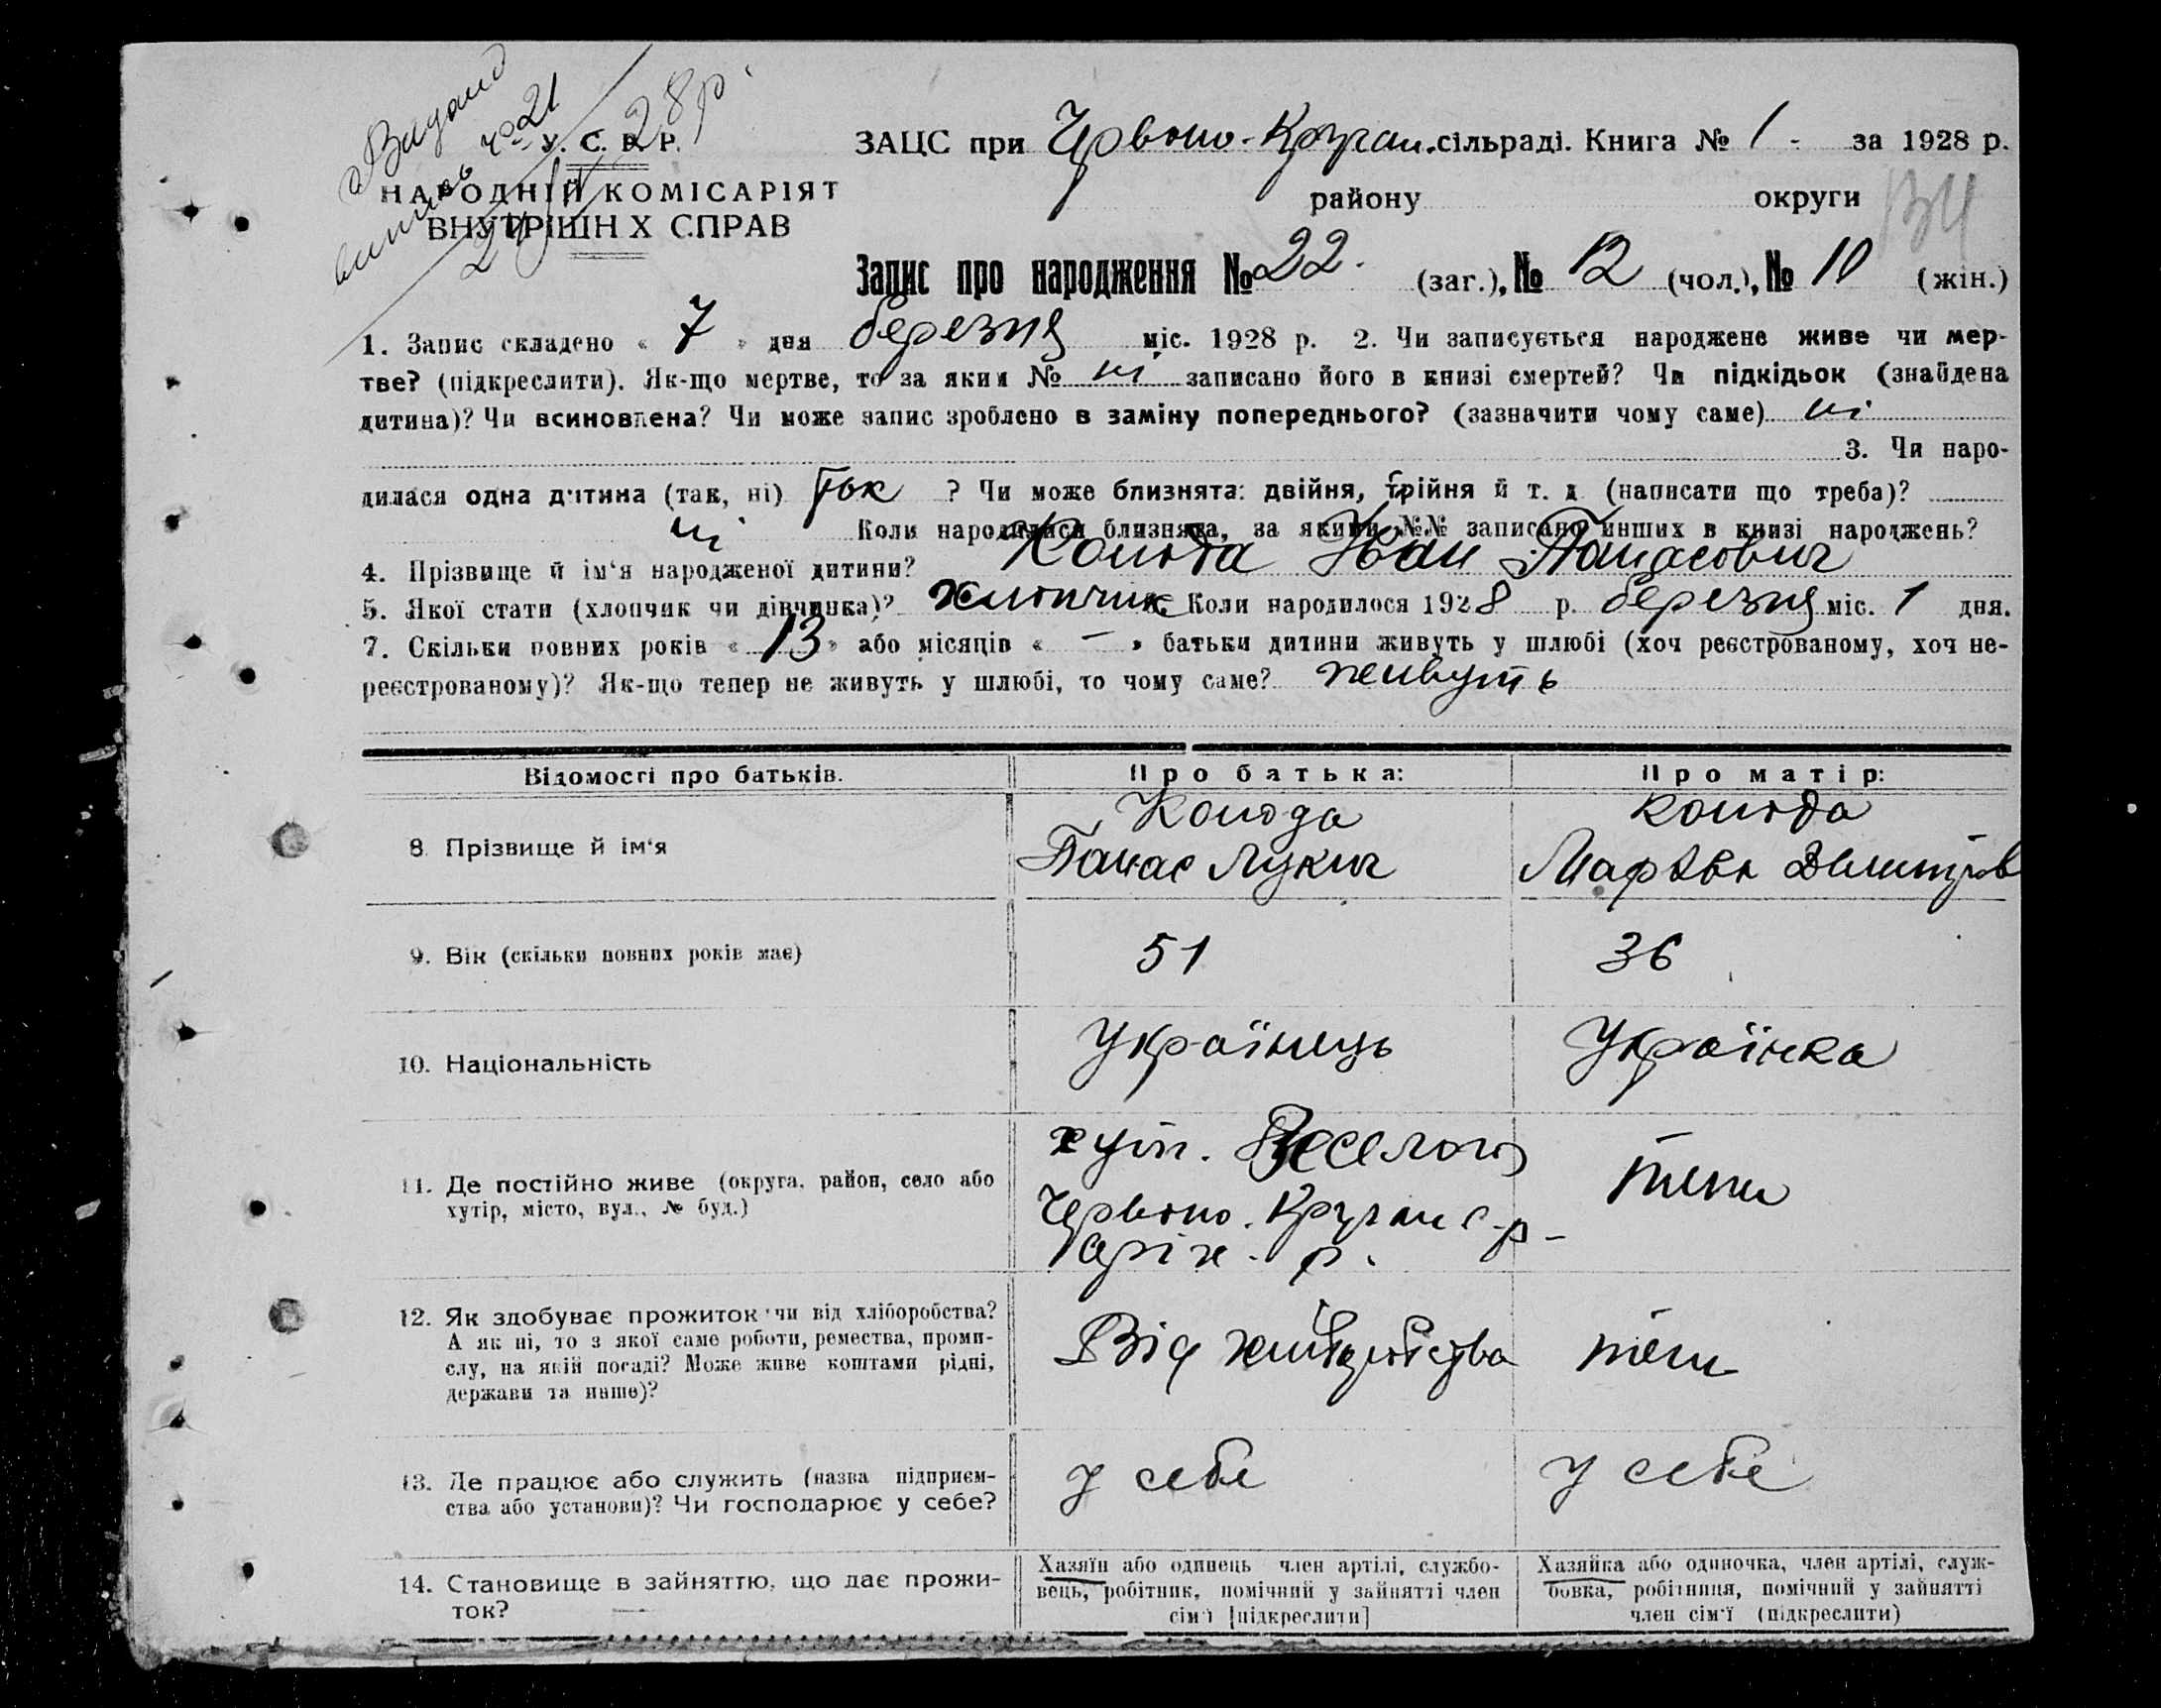 Видано
випись ч° 21
24/IV 28 р.
У. С. Р. Р.
НАРОДНІЙ КОМІСАРІЯТ
ВНУТРІШН Х СПРАВ
ЗАЦС при Червоно-Кружан. сільраді. Книга № 1 - за 1928 р.
району округи
134
Запис про народження № 22. (заг.), № 12 (чол.), № 10 (жін.)
1. Запис складено « 7 » дня березня міс. 1928 р. 2. Чи записується народжене живе чи мер-
тве? (підкреслити). Як-що мертве, то за яким № ні записано його в книзі смертей? Чи підкідьок (знайдена
дитина)? Чи всиновлена? Чи може запис зроблено в заміну попереднього? (зазначити чому саме) ні
3. Чи наро-
дилася одна дитина (так, ні) так ? Чи може близнята: двійня, трійня й т. д. (написати що треба)?
ні Коли народилися близнята, за якими №№ записано инших в книзі народжень?
4. Прізвище й ім'я народженої дитини? Колода Іван Панасович
5. Якої стати (хлопчик чи дівчинка)? хлопчик Коли народилося 1928 р. березня міс. 1 дня.
7. Скільки повних років « 13 » або місяців « – » батьки дитини живуть у шлюбі (хоч реєстрованому, хоч не-
реєстрованому)? Як-що тепер не живуть у шлюбі, то чому саме? живуть
Відомості про батьків. Про батька: Про матір:
8 Прізвище й ім'я Колода Колода
Панас Лукич Марфа Дмитров
9. Вік (скільки повних років має) 51 36
10. Національність Українець Українка
11. Де постійно живе (округа, район, село або хутір, місто, вул., № буд.) хут. Веселого теж
Червоно. Кружан с-р-
р.
12. Як здобуває прожиток чи від хліборобства?
А як ні, то з якої саме роботи, ремества, проми-
слу, на якій посаді? Може живе коштами рідні,
держави та инше)?
Від хліборобства теж
13. Де працює або служить (назва підприєм-
ства або установи)? Чи господарює у себе?
у себе у себе
14. Становище в зайняттю, що дає прожи-
ток?
Хазяїн або одинець член артілі, службо-
вець, робітник, помічний у зайнятті член
сім'ї [підкреслити]
Хазяйка або одиночка, член артілі, служ-
бовка, робітниця, помічний у зайнятті
член сім'ї (підкреслити)